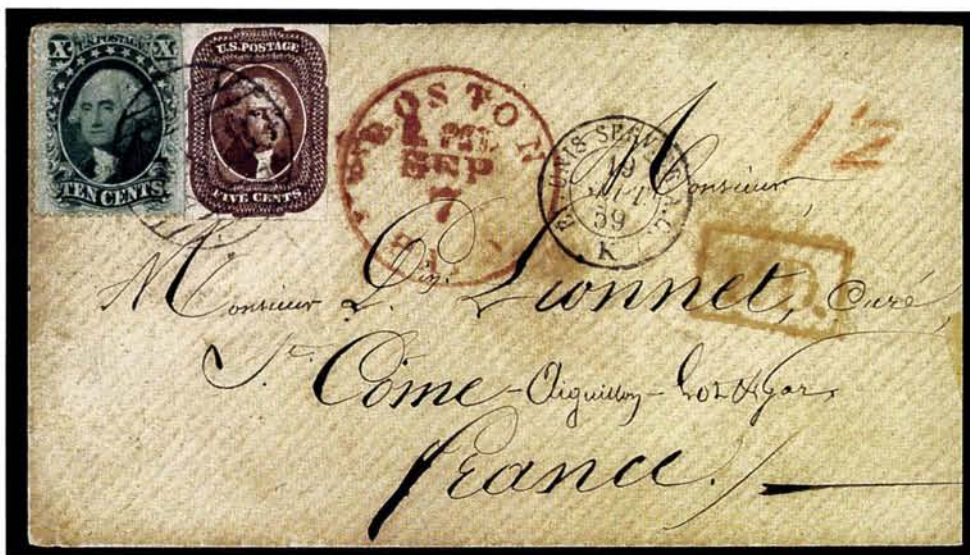 X U.S. POSTAGE X
TEN CENTS
U.S. POSTAGE
FIVE CENTS
BOSTON
SEP
7
19
59
K
12
Monsieur
Monsieur L. Lionnet, Curé
St. Côme - Aiguillon - Lot & Gar.
France.